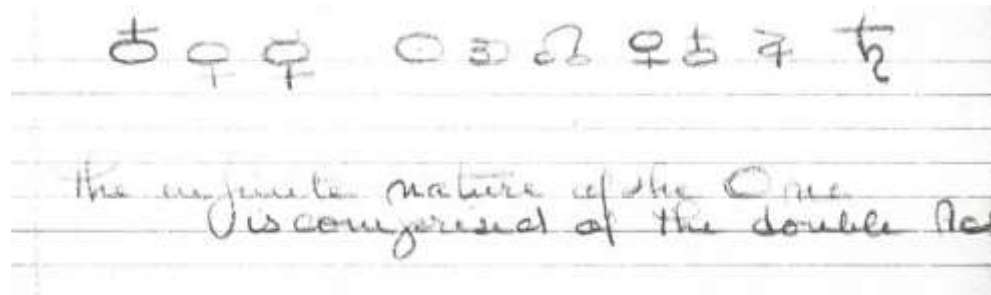 ♁ ♀ ☿ ☉ ☽ ☊ ♀ ♁ ♃ ♄
the infinite nature of the One
is comprised of the double